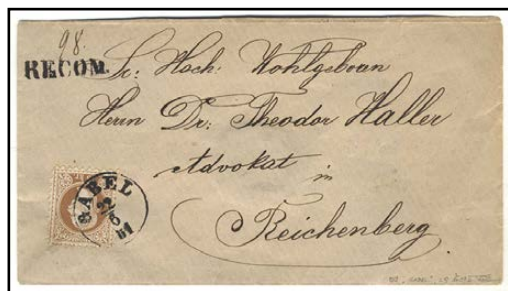 98.
RECOM.
Sr: Hoch: Wohlgeboren
Herrn Dr: Theodor Haller
Advokat
in
Reichenberg
GABEL
22
6
81